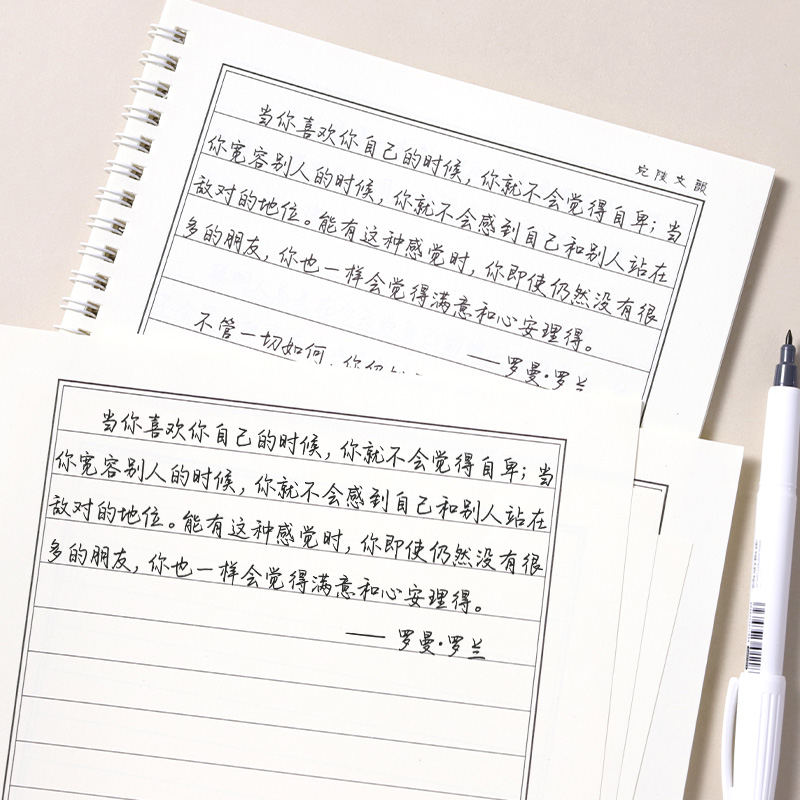 宛陵文韻
当你喜欢你自己的时候，你就不会觉得自卑；当
你宽容别人的时候，你就不会感到自己和别人站在
敌对的地位。能有这种感觉时，你即使仍然没有很
多的朋友，你也一样会觉得满意和心安理得。
——罗曼·罗兰
不管一切如何，你仍
当你喜欢你自己的时候，你就不会觉得自卑；当
你宽容别人的时候，你就不会感到自己和别人站在
敌对的地位。能有这种感觉时，你即使仍然没有很
多的朋友，你也一样会觉得满意和心安理得。
——罗曼·罗兰